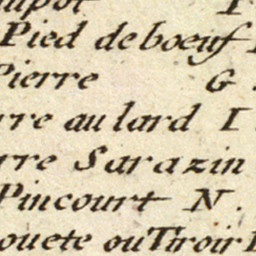 Pied de boeuf
Pierre G
rre au lard I
rre Sarazin
Pincourt N.
ouete ou Tiroir